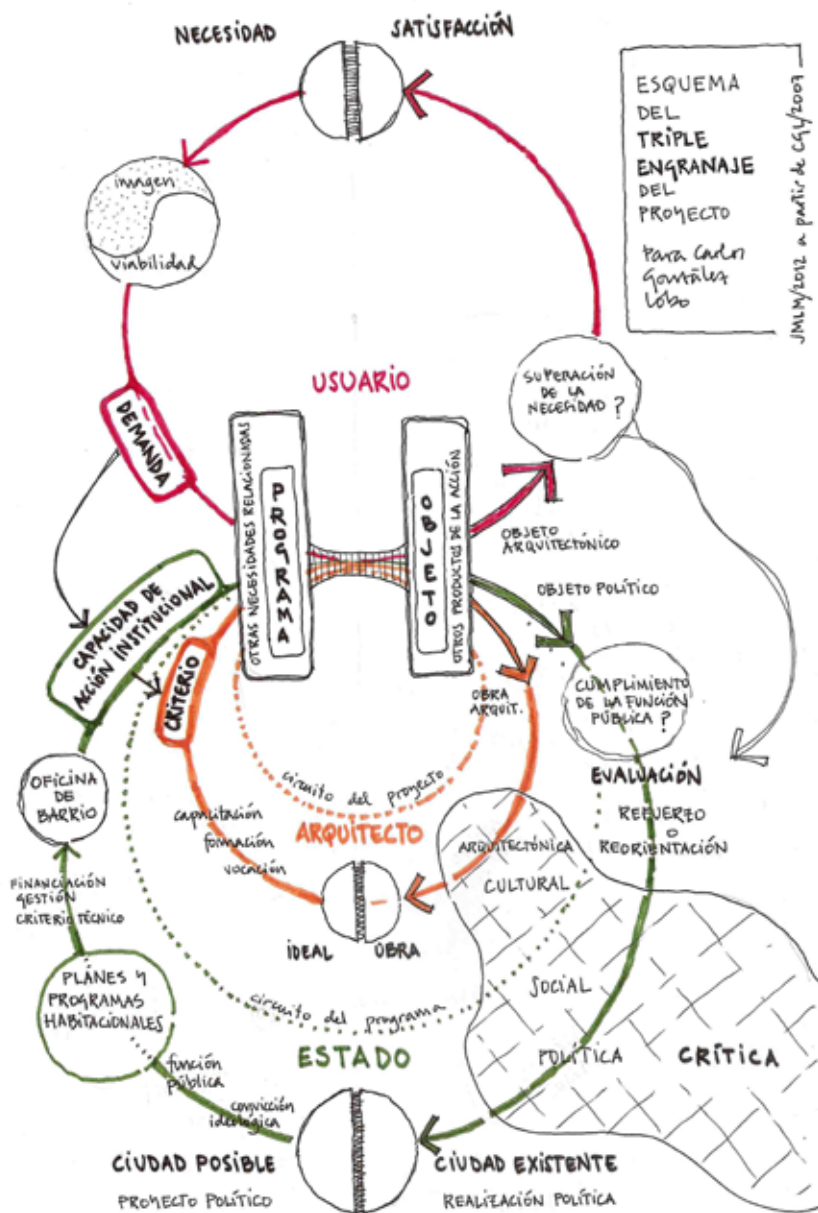 NECESIDAD
SATISFACCIÓN
ESQUEMA
DEL
TRIPLE
ENGRANAJE
DEL
PROYECTO
Para Carlos
González
Lobo
JMLM/2012 a partir de CGL/2007
imagen
viabilidad
USUARIO
SUPERACIÓN
DE LA
NECESIDAD?
DEMANDA
OTRAS NECESIDADES RELACIONADAS
PROGRAMA
OBJETO
OTROS PRODUCTOS DE LA ACCIÓN
OBJETO
ARQUITECTÓNICO
OBJETO POLÍTICO
CAPACIDAD DE
ACCIÓN INSTITUCIONAL
CRITERIO
OBRA
ARQUIT.
CUMPLIMIENTO
DE LA FUNCIÓN
PÚBLICA?
EVALUACIÓN
REFUERZO
O
REORIENTACIÓN
OFICINA
DE
BARRIO
circuito del proyecto
ARQUITECTO
capacitación
formación
vocación
ARQUITECTÓNICA
CULTURAL
FINANCIACIÓN
GESTIÓN
CRITERIO TÉCNICO
IDEAL
OBRA
PLANES Y
PROGRAMAS
HABITACIONALES
circuito del programa
SOCIAL
ESTADO
POLÍTICA
CRÍTICA
función
pública
convicción
ideológica
CIUDAD POSIBLE
CIUDAD EXISTENTE
PROYECTO POLÍTICO
REALIZACIÓN POLÍTICA